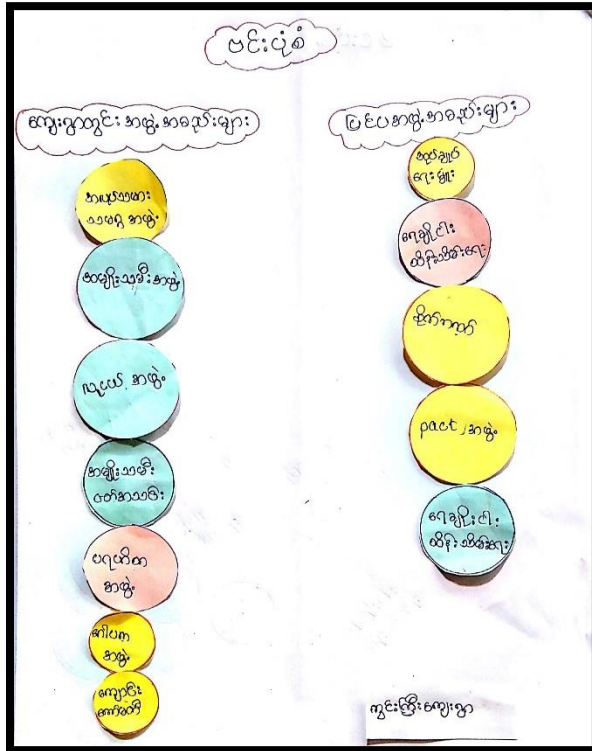 ဗင်းပုံစံ
ကျေးရွာတွင်း အဖွဲ့အစည်းများ
အလုပ်သမား
သမဂ္ဂ အဖွဲ့
အမျိုးသမီးအဖွဲ့
လူငယ် အဖွဲ့
အမျိုးသမီး
ဇတ်အသင်း
ပရဟိတ
အဖွဲ့
ဂေါပက
အဖွဲ့
ကျောင်း
ကော်မတီ
ပြင်ပအဖွဲ့အစည်းများ
အုပ်ချုပ်
ရေးမှူး
ရေချိုငါး
ထိန်းသိမ်းရေး
pact အဖွဲ့
ရေချိုငါး
ထိန်းသိမ်းရေး
ကွင်းကြီးကျေးရွာ